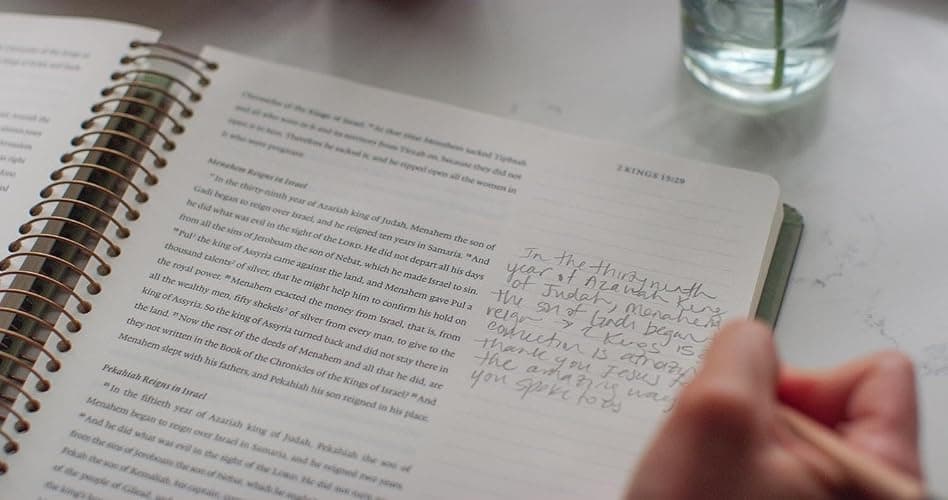 2 KINGS 15:29
Chronicles of the Kings of Israel. 16 At that time Menahem sacked Tiphsah
and all who were in it and its territory from Tirzah on, because they did not
open it to him. Therefore he sacked it, and he ripped open all the women in
it who were pregnant.
Menahem Reigns in Israel
17 In the thirty-ninth year of Azariah king of Judah, Menahem the son of
Gadi began to reign over Israel, and he reigned ten years in Samaria. 18 And
he did what was evil in the sight of the LORD. He did not depart all his days
from all the sins of Jeroboam the son of Nebat, which he made Israel to sin.
19 Pul1 the king of Assyria came against the land, and Menahem gave Pul a
thousand talents2 of silver, that he might help him to confirm his hold on
the royal power. 20 Menahem exacted the money from Israel, that is, from
all the wealthy men, fifty shekels3 of silver from every man, to give to the
king of Assyria. So the king of Assyria turned back and did not stay there in
the land. 21 Now the rest of the deeds of Menahem and all that he did, are
they not written in the Book of the Chronicles of the Kings of Israel? 22 And
Menahem slept with his fathers, and Pekahiah his son reigned in his place.
Pekahiah Reigns in Israel
23 In the fiftieth year of Azariah king of Judah, Pekahiah the son of
Menahem began to reign over Israel in Samaria, and he reigned two years.
24 And he did what was evil in the sight of the LORD. He did not turn away
from the sins of Jeroboam the son of Nebat, which he
Pekah the son of Remaliah, his captain,
of the people of Gilead, and
the king's
In the thirty ninth
year of Azariah King
of Judah, Menahem
the son of Gadi began
reign → 2 Kings 15
connection is
thank you Jesus
the amazing way
you spoke to us